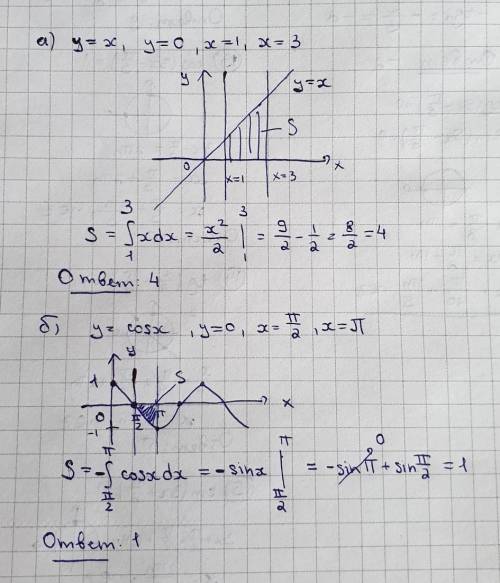 а) y = x, y = 0, x = 1, x = 3
y
y = x
S
0
x=1
x=3
x
S = ∫₁³ x dx = x²/2 |₁³ = 9/2 - 1/2 = 8/2 = 4
Ответ: 4
б) y = cosx, y = 0, x = π/2, x = π
y
1
S
0
π/2
π
x
-1
S = -∫_{π/2}^{π} cosx dx = -sinx |_{π/2}^{π} = -sin π + sin π/2 = 1
0
Ответ: 1